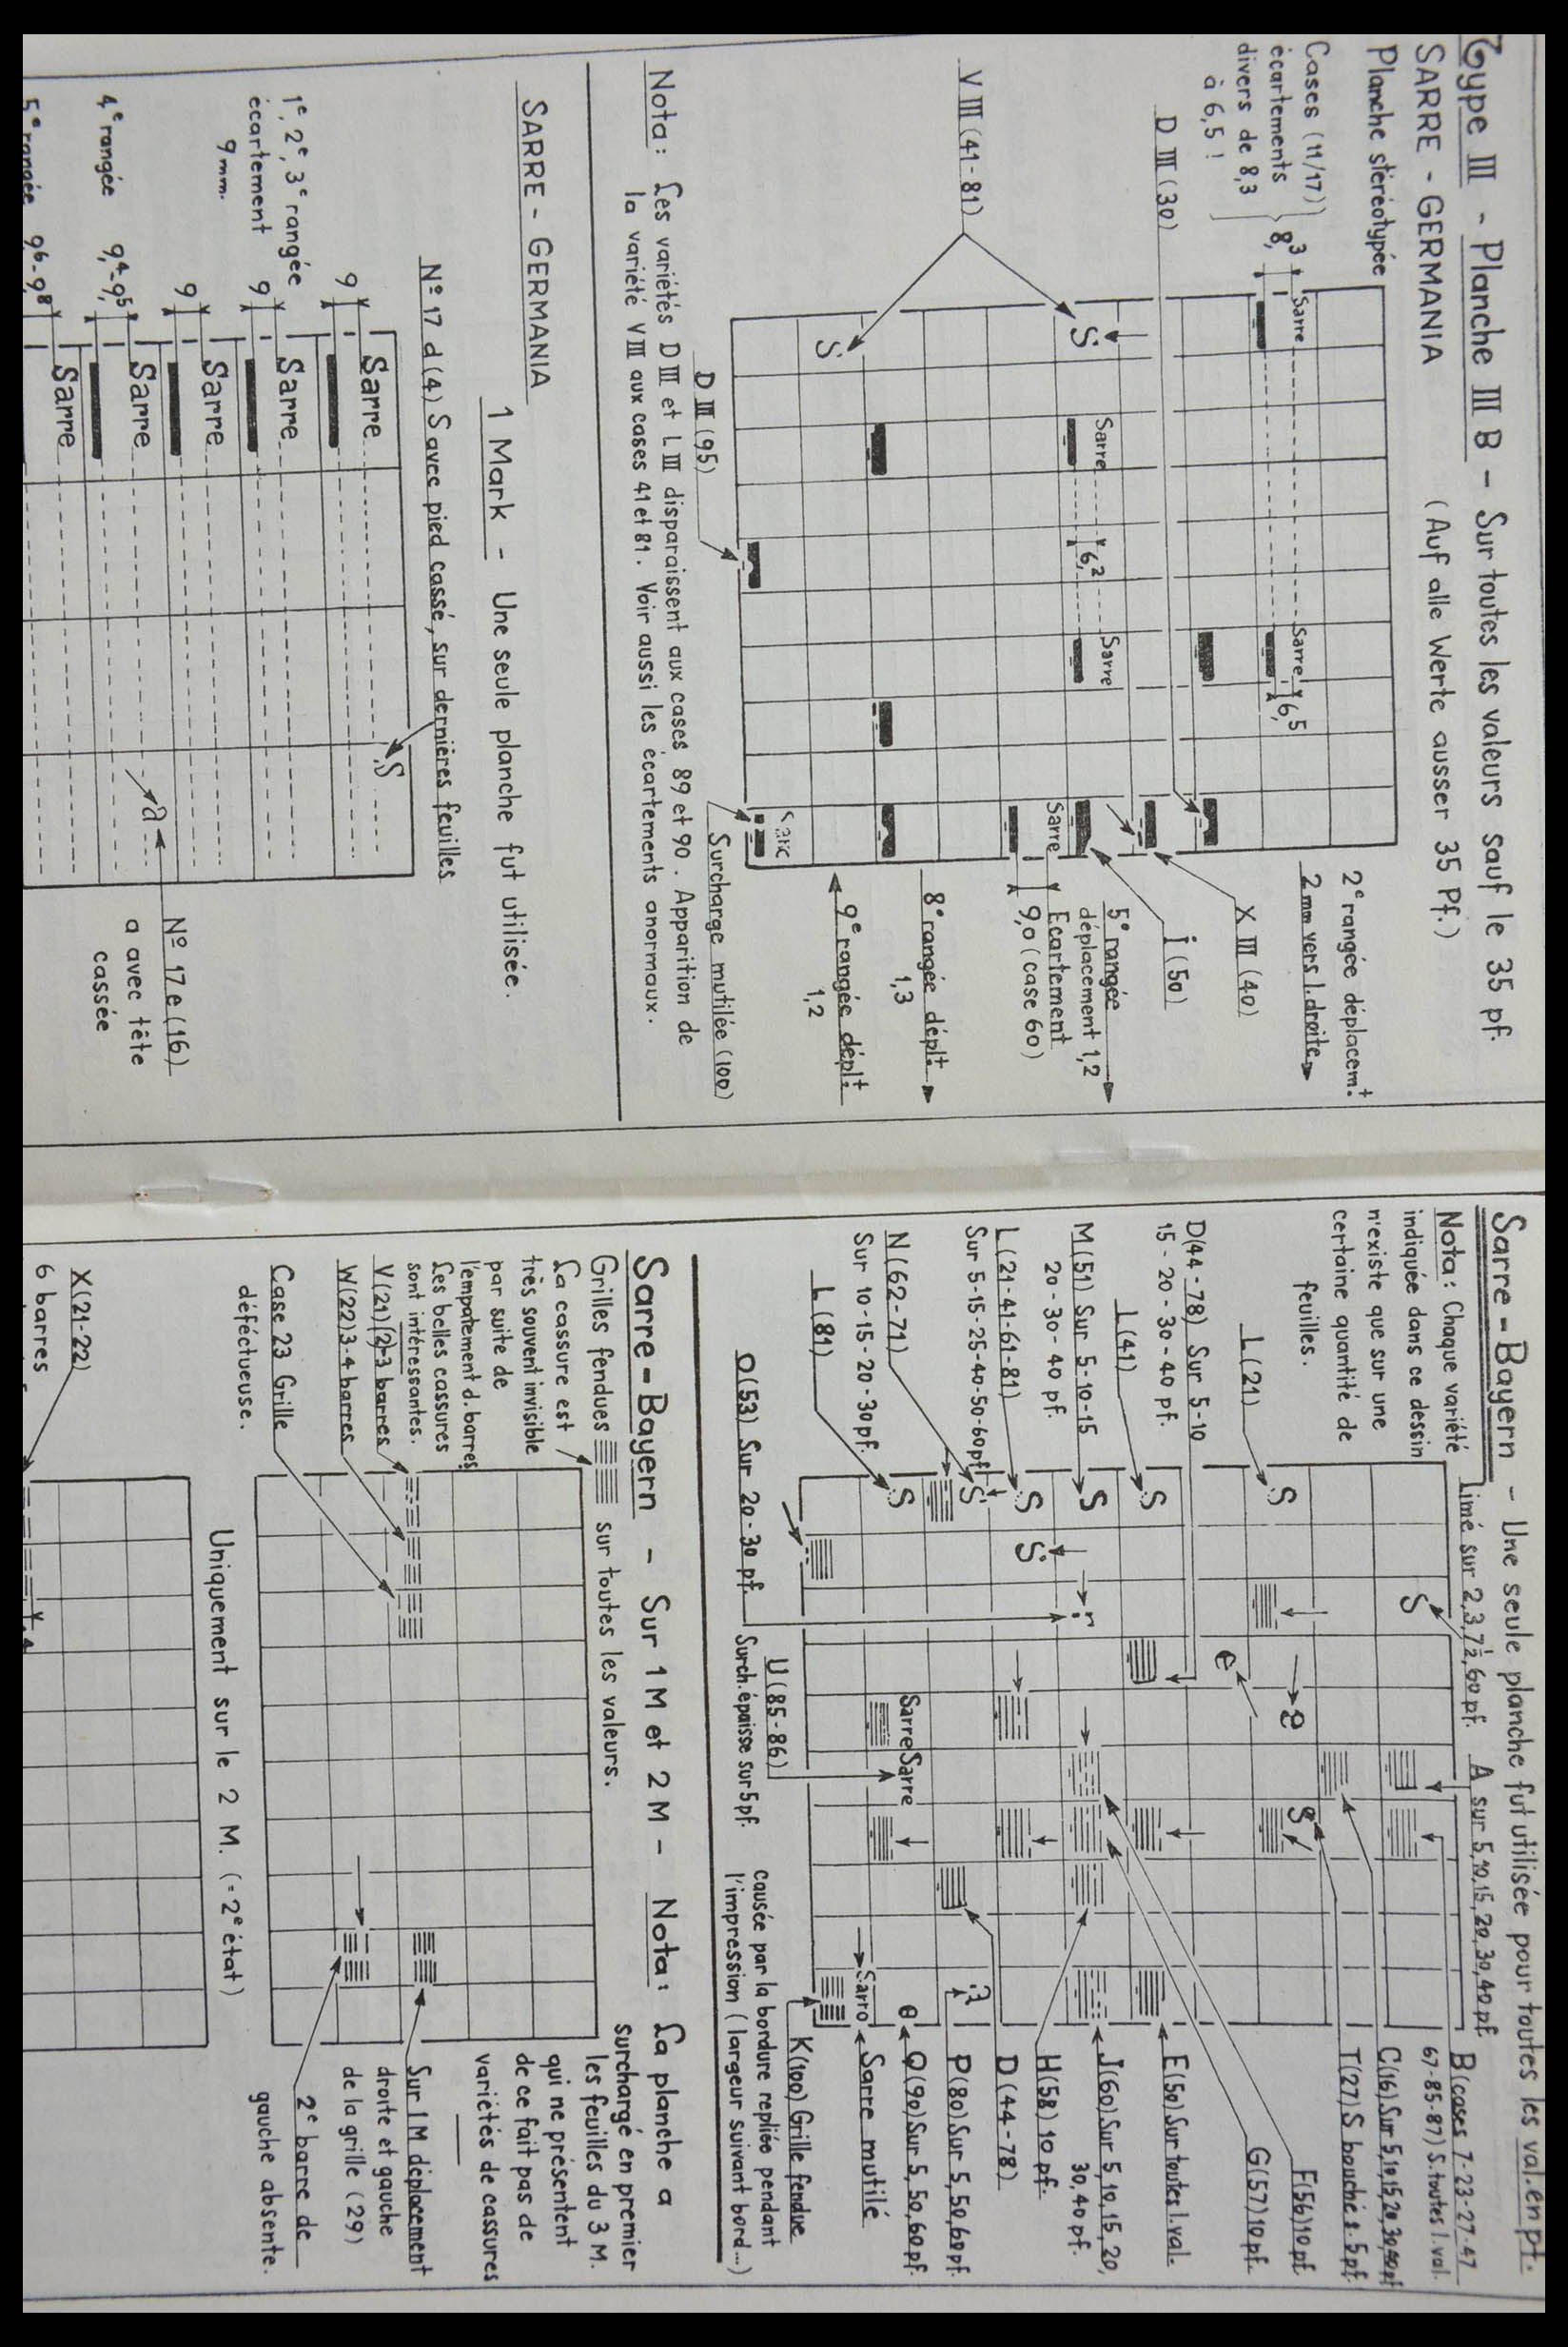 Type III - Planche III B - Sur toutes les valeurs sauf le 35 pf.
SARRE - GERMANIA (Auf alle Werte ausser 35 Pf.)
Planche stéréotypée
Cases (11/17)
écartements
divers de 8,3
à 6,5 !
8,3
Sarre
Sarre
6,5
2e rangée déplacemt
2 mm vers l. droite
D III (30)
X III (40)
i (50)
V III (41 - 81)
S
Sarre
6,2
Sarre
Sarre
5e rangée
déplacement 1,2
Ecartement
9,0 (case 60)
8e rangée déplt
1,3
S
9e rangée déplt
1,2
D III (95)
Surcharge mutilée (100)
Nota : Les variétés D III et L III disparaissent aux cases 89 et 90. Apparition de
la variété V III aux cases 41 et 81. Voir aussi les écartements anormaux.
SARRE - GERMANIA
1 Mark - Une seule planche fut utilisée.
No 17 d (4) S avec pied cassé, sur dernières feuilles
1e, 2e, 3e rangée
écartement
9 mm.
9
Sarre
S
9
Sarre
9
Sarre
4e rangée 9,4-9,5
Sarre
a
No 17 e (16)
a avec tête
cassée
5e rangée 9,6-9,8
Sarre
Sarre - Bayern - Une seule planche fut utilisée pour toutes les val. en pf.
Nota : Chaque variété
indiquée dans ce dessin
n'existe que sur une
certaine quantité de
feuilles.
Limé sur 2,3,7½,60 pf.
A sur 5,10,15,20,30,40 pf
B (cases 7-23-27-47
67-85-87) S. toutes l. val.
C (16) Sur 5,10,15,20,30,40 pf
T (27) S bouché s. 5 pf.
S
L (21)
S
e
e
S
F (56) 10 pf
G (57) 10 pf.
D (44 - 78) Sur 5-10
15 - 20 - 30 - 40 pf.
L (41)
S
E (50) Sur toutes l. val.
M (51) Sur 5-10-15
20 - 30 - 40 pf.
S
r
J (60) Sur 5, 10, 15, 20,
30, 40 pf.
H (58) 10 pf.
L (21-41-61-81)
Sur 5-15-25-40-50-60 pf
S
S
D (44 - 78)
N (62 - 71)
Sur 10-15-20-30 pf.
S
P (80) Sur 5, 50, 60 pf.
L (81)
S
Sarre Sarre
e
Q (90) Sur 5, 50, 60 pf.
Sarro
Sarre mutilé
O (53) Sur 20 - 30 pf.
U (85 - 86)
K (100) Grille fendue
Surch. épaisse sur 5 pf.
causée par la bordure repliée pendant
l'impression (largeur suivant bord...)
Sarre - Bayern - Sur 1 M et 2 M - Nota : La planche a
surchargé en premier
les feuilles du 3 M.
qui ne présentent
de ce fait pas de
variétés de cassures
Grilles fendues sur toutes les valeurs.
La cassure est
très souvent invisible
par suite de
l'empatement d. barres
Les belles cassures
sont intéressantes.
V (21) (2)-3 barres
W (22) 3-4 barres
Case 23 Grille
déféctueuse.
Sur 1 M déplacement
droite et gauche
de la grille (29)
2e barre de
gauche absente.
Uniquement sur le 2 M. (= 2e état)
X (21-22)
6 barres